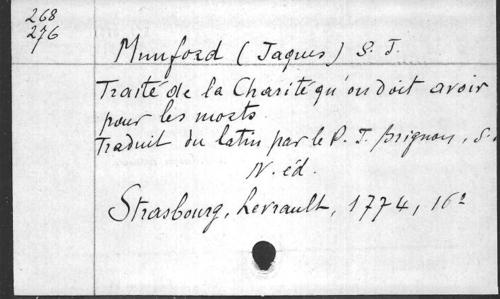 268
276
Mumford (Jaques) S. J.
Traité de la Charité qu'on doit avoir
pour les morts.
Traduit du latin par le P. J. Brignon, S.
N. éd.
Strasbourg, Levrault, 1774, 16º